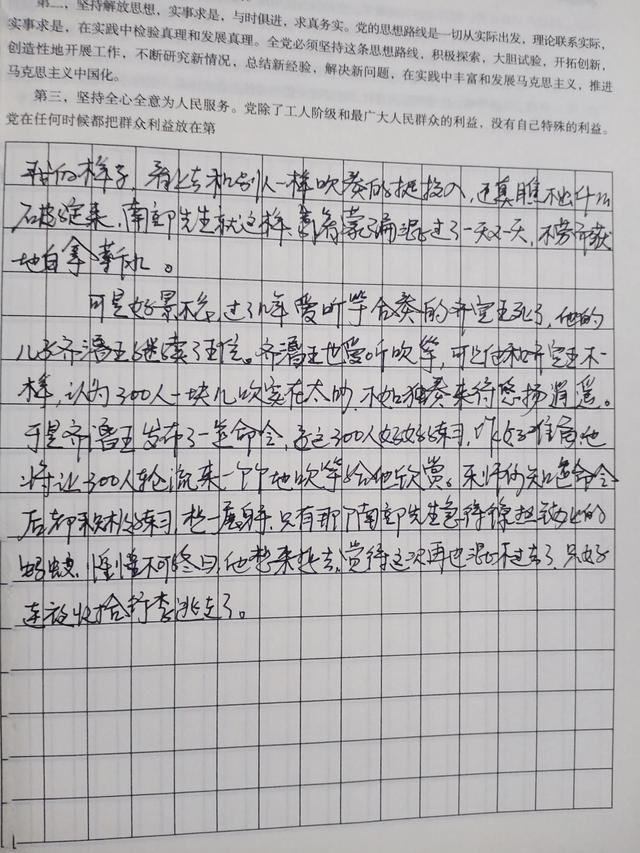 第二，坚持解放思想，实事求是，与时俱进，求真务实。党的思想路线是一切从实际出发，理论联系实际，
实事求是，在实践中检验真理和发展真理。全党必须坚持这条思想路线，积极探索，大胆试验，开拓创新，
创造性地开展工作，不断研究新情况，总结新经验，解决新问题，在实践中丰富和发展马克思主义，推进
马克思主义中国化。
第三，坚持全心全意为人民服务。党除了工人阶级和最广大人民群众的利益，没有自己特殊的利益。
党在任何时候都把群众利益放在第
的样子，看上去和别人一样吹奏的挺投入，还真瞧不出什么
破绽来，南郭先生就这样靠着蒙骗混过了一天又一天，不劳而获
地白拿薪水。
可是好景不长，过了几年爱听竽合奏的齐宣王死了，他的
儿子齐湣王继续了王位。齐湣王也爱听吹竽，可是他和齐宣王不一
样，认为300人一块儿吹实在太吵，不如独奏来得悠扬逍遥。
于是齐湣王发布了一道命令，这300人好好练习，作好准备，他
将让300人轮流来一个个地吹竽给他欣赏。乐师们知道命令
后都积极练习，想一展身手，只有那个南郭先生急得像热锅上的
蚂蚁，惶惶不可终日，他想来想去，觉得这次再也混不过去了，只好
连夜收拾行李逃走了。